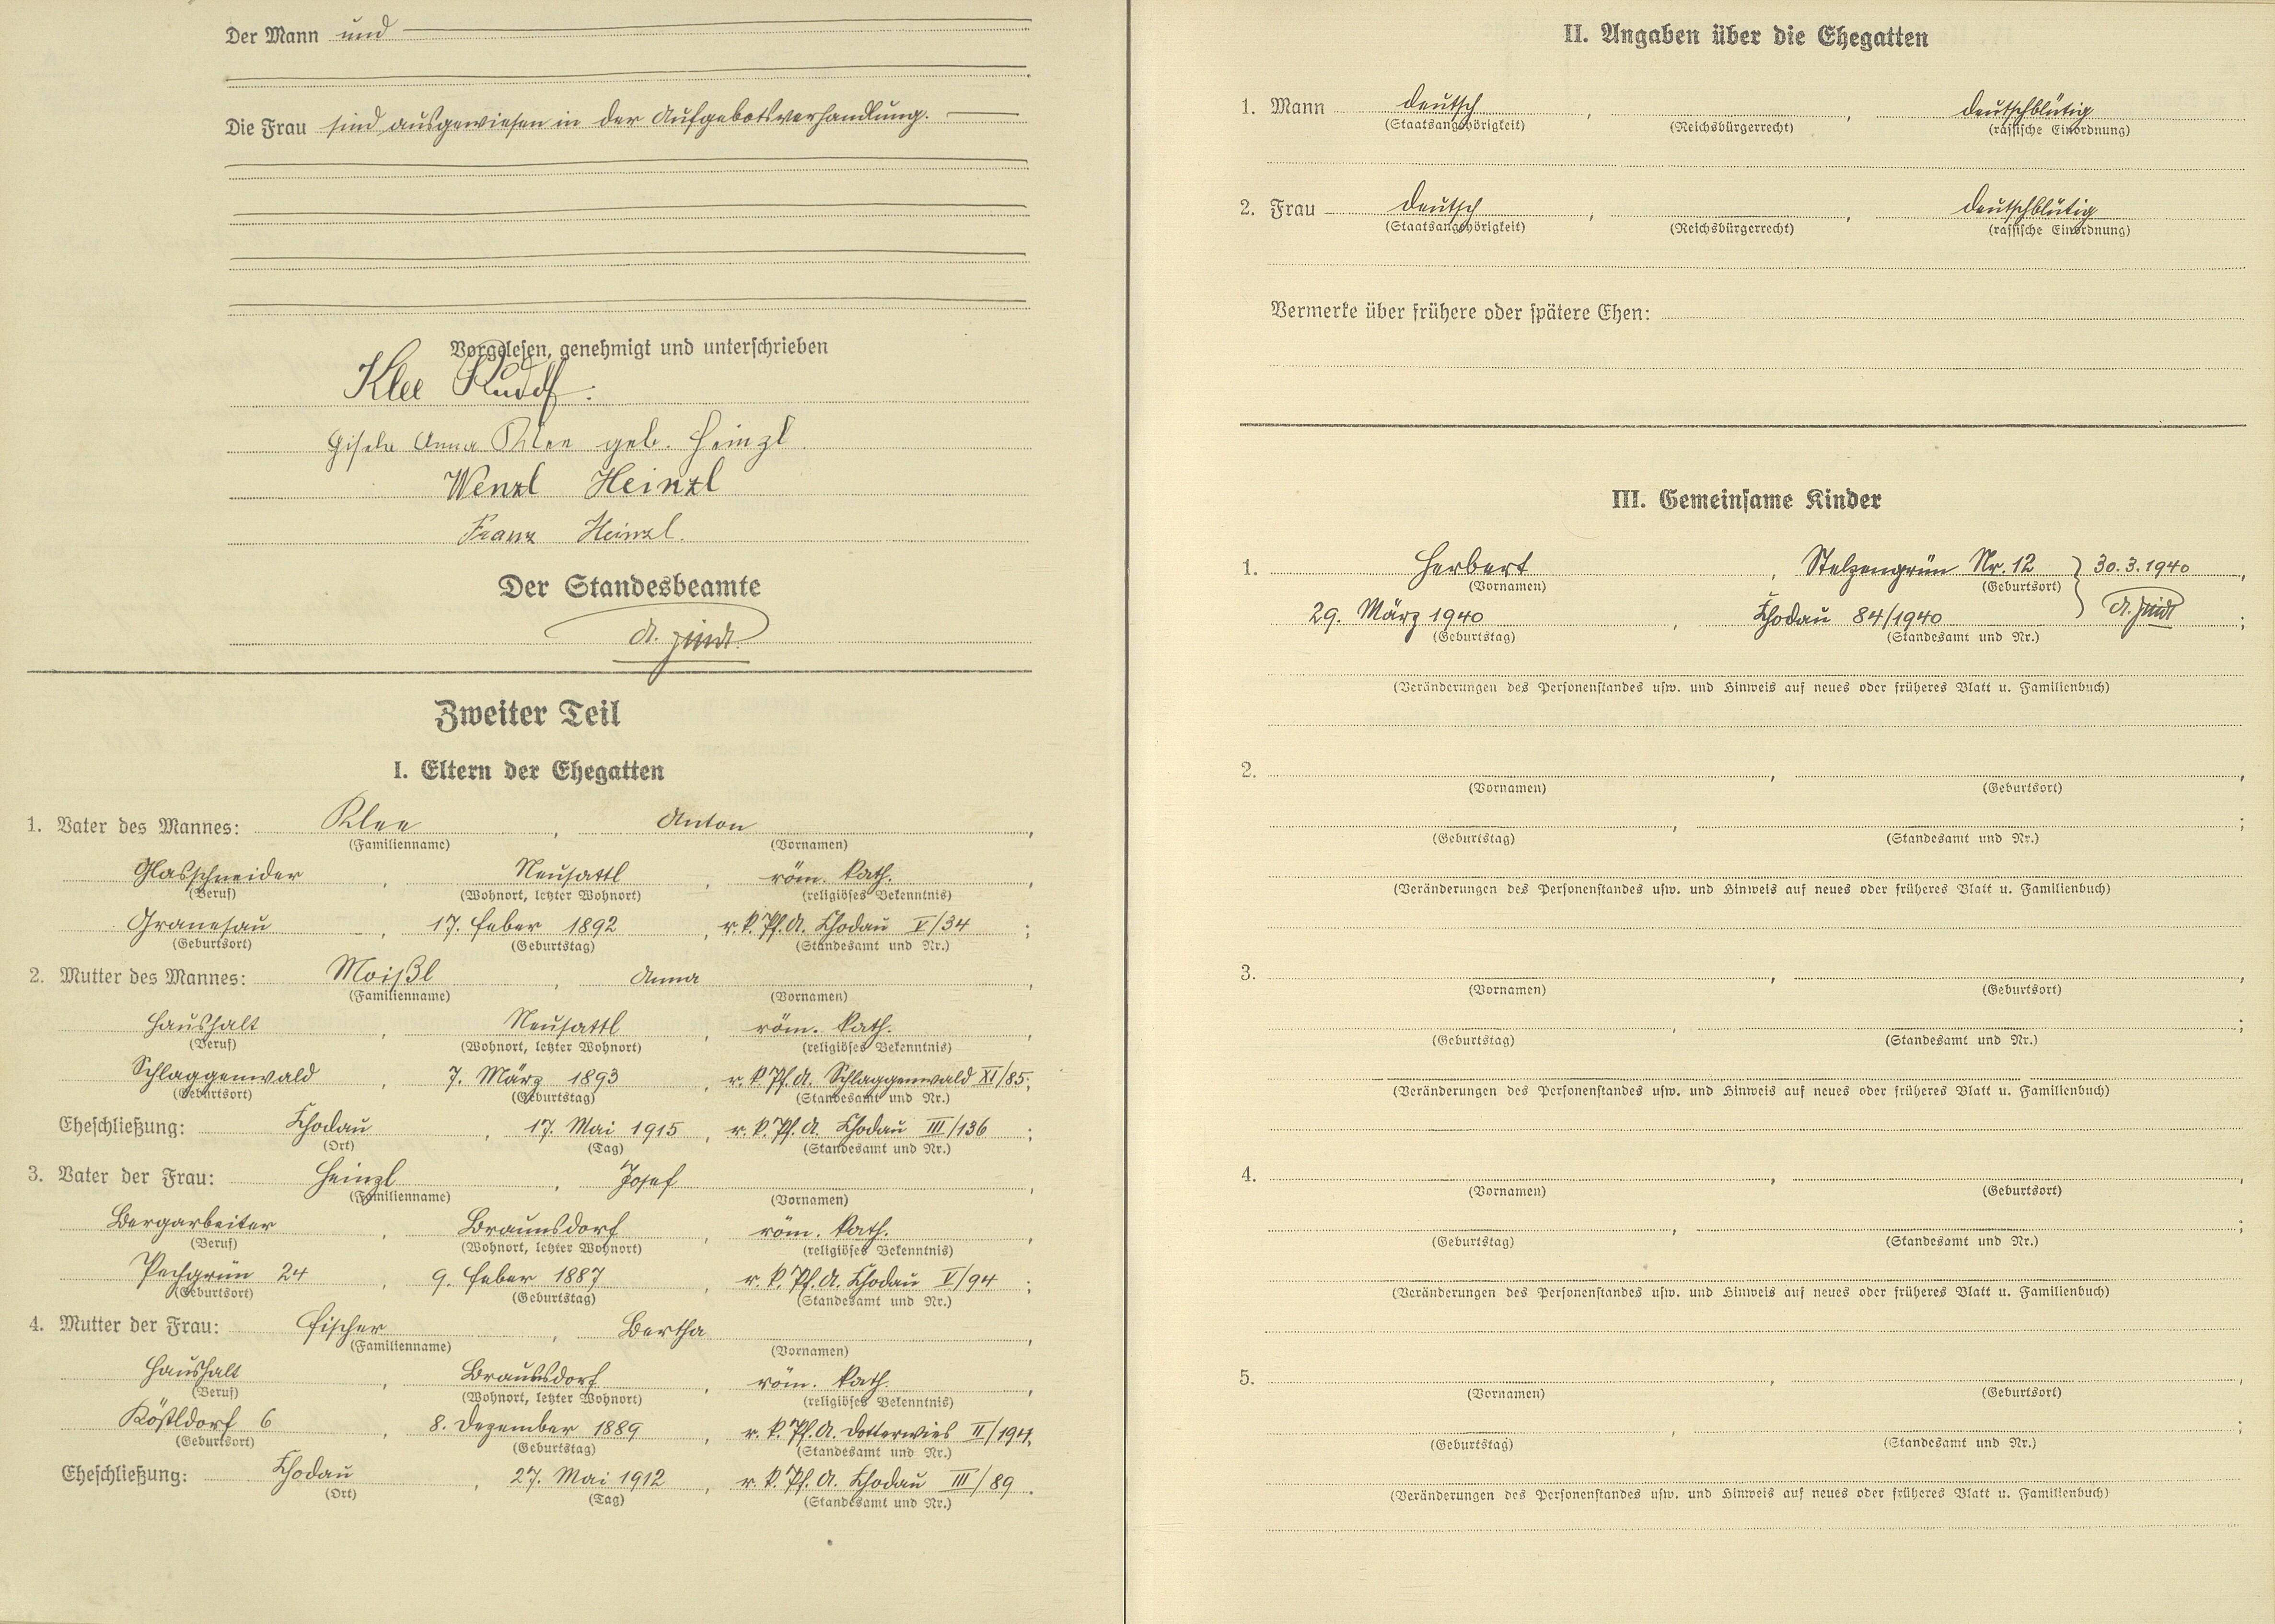 Der Mann und
Die Frau sind ausgewiesen in der Aufgebotsverhandlung.
Vorgelesen, genehmigt und unterschrieben
Klee Rudolf.
Gisela Anna Klee geb. Heinzl
Wenzl Heinzl
Franz Heinzl.
Der Standesbeamte
A.
Zweiter Teil
I. Eltern der Ehegatten
1. Vater des Mannes: Klee, Anton,
(Familienname) (Vornamen)
Glasschneider, Neusattl, röm. kath.,
(Beruf) (Wohnort, letzter Wohnort) (religiöses Bekenntnis)
Granesau, 17. Feber 1892, r. k. Pf. A. Chodau V/34;
(Geburtsort) (Geburtstag) (Standesamt und Nr.)
2. Mutter des Mannes: Moißl, Anna,
(Familienname) (Vornamen)
Haushalt, Neusattl, röm. kath.,
(Beruf) (Wohnort, letzter Wohnort) (religiöses Bekenntnis)
Schlaggenwald, 7. März 1893, r. k. Pf. A. Schlaggenwald XI/85;
(Geburtsort) (Geburtstag) (Standesamt und Nr.)
Eheschließung: Chodau, 17. Mai 1915, r. k. Pf. A. Chodau III/136;
(Ort) (Tag) (Standesamt und Nr.)
3. Vater der Frau: Heinzl, Josef,
(Familienname) (Vornamen)
Bergarbeiter, Braunsdorf, röm. kath.,
(Beruf) (Wohnort, letzter Wohnort) (religiöses Bekenntnis)
Pechgrün 24, 9. Feber 1887, r. k. Pf. A. Chodau V/94;
(Geburtsort) (Geburtstag) (Standesamt und Nr.)
4. Mutter der Frau: Fischer, Bertha,
(Familienname) (Vornamen)
Haushalt, Braunsdorf, röm. kath.,
(Beruf) (Wohnort, letzter Wohnort) (religiöses Bekenntnis)
Köstldorf 6, 8. Dezember 1889, r. k. Pf. A. Dotterwies II/194;
(Geburtsort) (Geburtstag) (Standesamt und Nr.)
Eheschließung: Chodau, 27. Mai 1912, r. k. Pf. A. Chodau III/89.
(Ort) (Tag) (Standesamt und Nr.)
II. Angaben über die Ehegatten
1. Mann deutsch, , deutschblütig
(Staatsangehörigkeit) (Reichsbürgerrecht) (rassische Einordnung)
2. Frau deutsch, , deutschblütig
(Staatsangehörigkeit) (Reichsbürgerrecht) (rassische Einordnung)
Vermerke über frühere oder spätere Ehen:
III. Gemeinsame Kinder
1. Herbert, Stelzengrün Nr. 12 } 30.3.1940,
(Vornamen) (Geburtsort)
29. März 1940, Chodau 84/1940 A. ;
(Geburtstag) (Standesamt und Nr.)
(Veränderungen des Personenstandes usw. und Hinweis auf neues oder früheres Blatt u. Familienbuch)
2. , ,
(Vornamen) (Geburtsort)
, ;
(Geburtstag) (Standesamt und Nr.)
(Veränderungen des Personenstandes usw. und Hinweis auf neues oder früheres Blatt u. Familienbuch)
3. , ,
(Vornamen) (Geburtsort)
, ;
(Geburtstag) (Standesamt und Nr.)
(Veränderungen des Personenstandes usw. und Hinweis auf neues oder früheres Blatt u. Familienbuch)
4. , ,
(Vornamen) (Geburtsort)
, ;
(Geburtstag) (Standesamt und Nr.)
(Veränderungen des Personenstandes usw. und Hinweis auf neues oder früheres Blatt u. Familienbuch)
5. , ,
(Vornamen) (Geburtsort)
, ;
(Geburtstag) (Standesamt und Nr.)
(Veränderungen des Personenstandes usw. und Hinweis auf neues oder früheres Blatt u. Familienbuch)